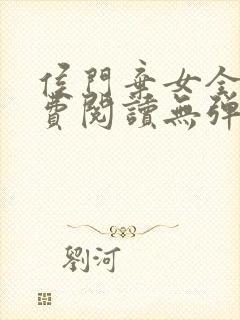 侯門棄女全
費閱讀無彈
劉河